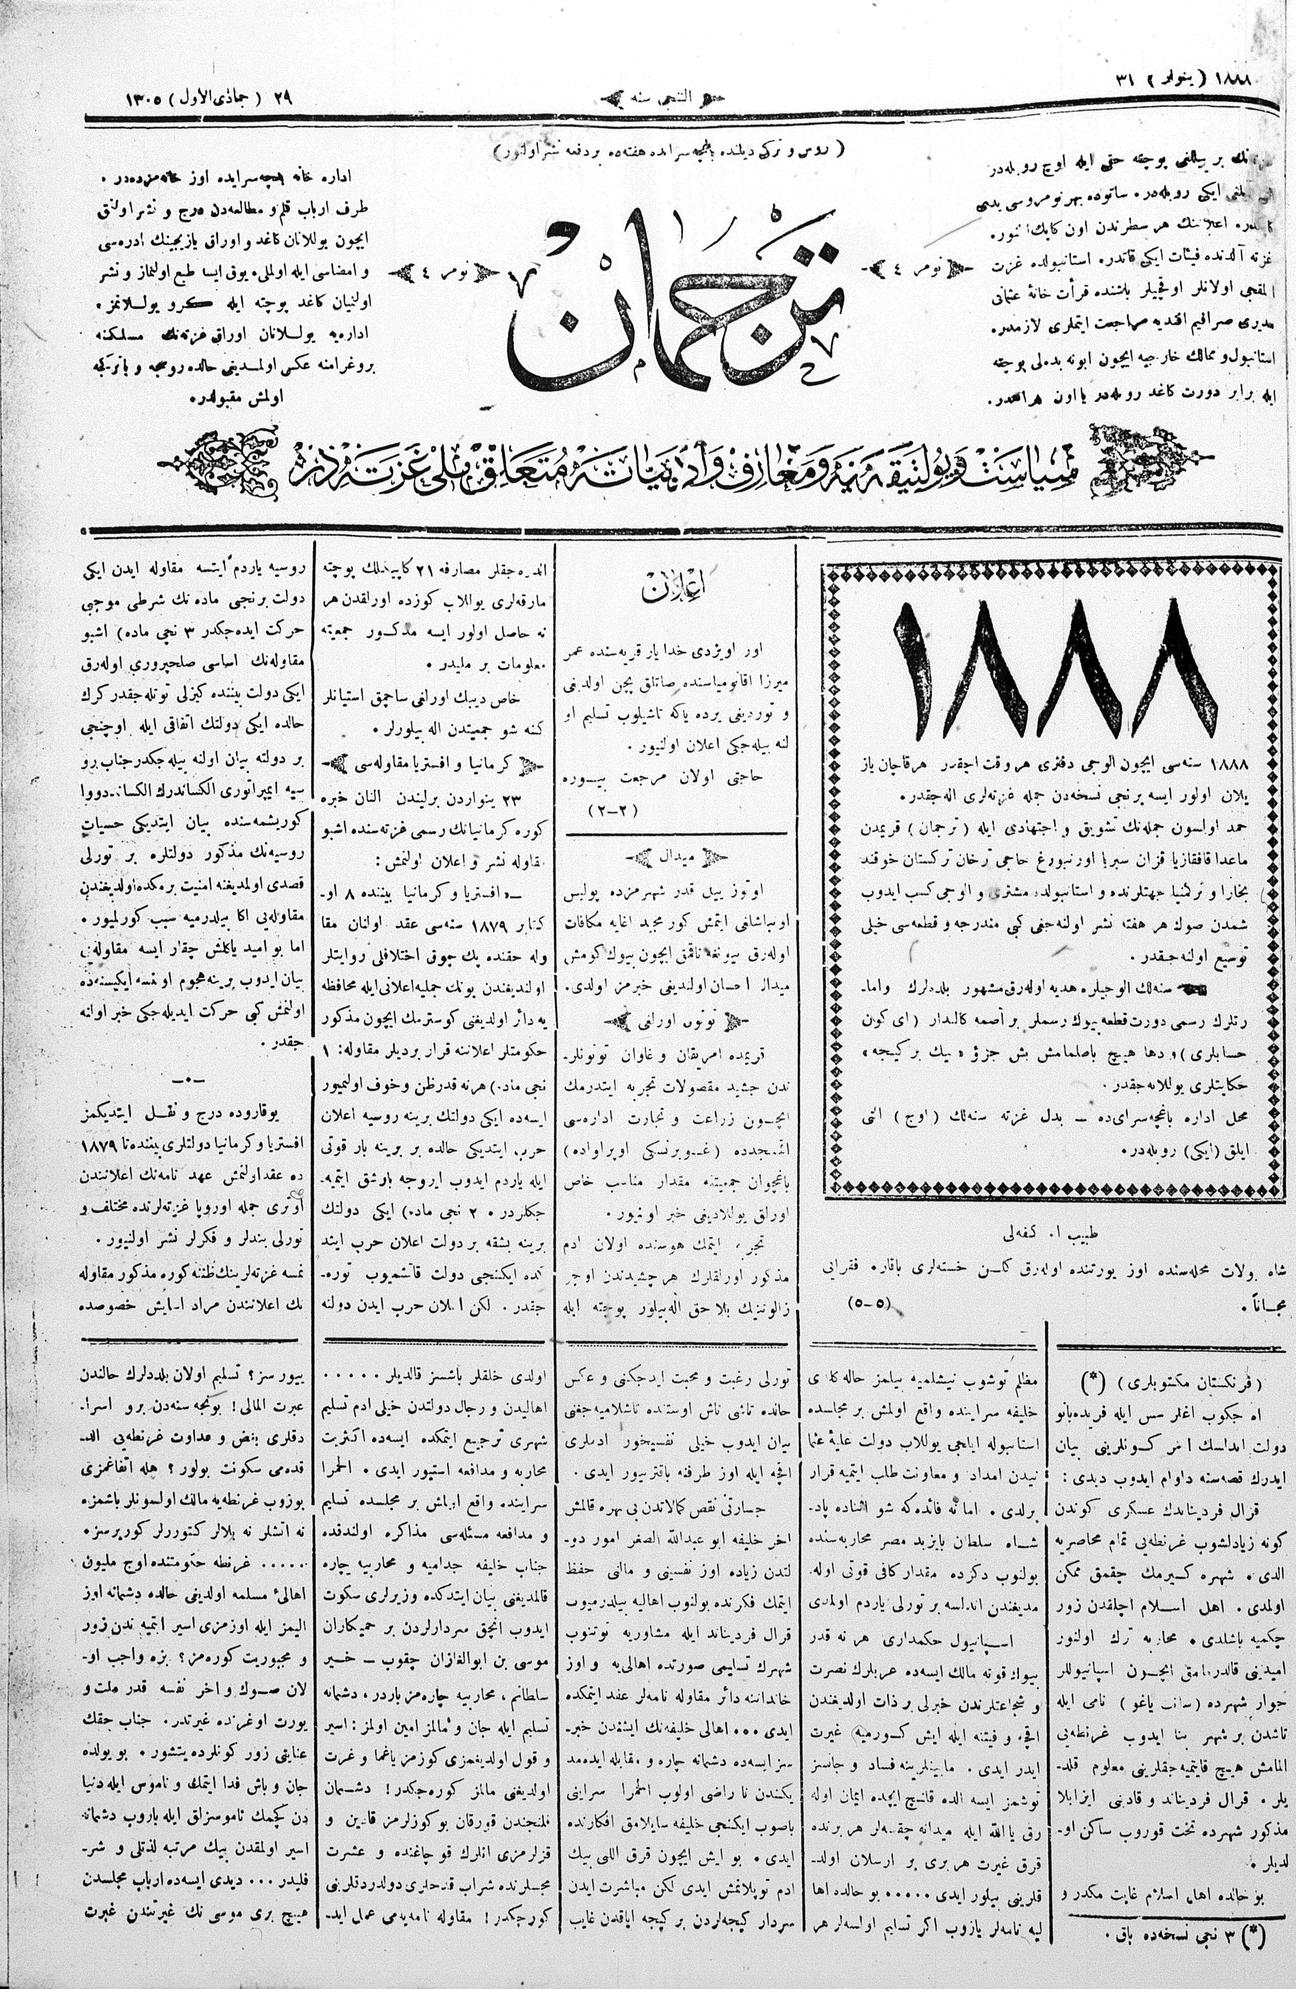 ١٨٨٨ ( ینوار ) ٣١
التنجی سنه
٢٩ ( جماذی الاول ) ١٣٠٥
( روس و ترکی دیلنده باغچه سرایده هفته ده بر دفعه نشر اولنور )
بر ییللغی پوچته حقی ایله اوچ روبله در
ایکی روبله در ۰ ساتوده بهر نومروسی یدی
اعلاننك هر سطرندن اون کاپك النور ۰
غزته آلدنده فیئات ایکی قاتدر ۰ استانبولده غزت
المقجی اولانلر اوقچیلر باشنده قرأت خانهٔ عثمانی
مدیری صرافیم افندیه مراجعت ایتملری لازمدر ۰
استانبول و ممالك خارجیه ایچون ابونه بدلی پوچته
ایله برابر دورت کاغد روبله در یا اون فرانقدر ۰
نومر ٤
ترجمان
نومر ٤
اداره خانه باغچه سرایده اوز خانه مزده در ۰
طرف ارباب قلم و مطالعه دن درج و نشر اولنق
ایچون یوللانان کاغد و اوراق یازیجینك ادره سی
و امضاسی ایله اولملی ۰ یوق ایسا طبع اولنماز و نشر
اولنیان کاغد پوچته ایله کرو یوللانمز ۰
اداره یه یوللانان اوراق غزته نك مسلکنه
پروغرامنه عکس اولمدیغی حالده روسچه و یا ترکچه
اولمش مقبولدر ۰
سیاست و پولتیقه یه و معارف و ادبیاته متعلق ملی غزته در
١٨٨٨
١٨٨٨ سنه سی ایچون الوجی دفتری هر وقت اچقدر هر قاچان یاز
یلان اولور ایسه برنجی نسخه دن جمله غزته لری اله جقدر ۰
حمد اولسون جمله نك تشویق و اجتهادی ایله ( ترجمان ) قریمدن
ماعدا قافقازیا قزان سبریا اورنبورغ حاجی ترخان ترکستان خوقند
بخارا و ترکمنیا جهتلرنده و استانبولده مشتری و الوجی کسب ایدوب
شمدن صوك هر هفته نشر اولنه جغی کبی مندرجه و قطعه سی خیلی
توسیع اولنه جقدر ۰
سنه لك الوجیلره هدیه اوله رق مشهور بلده لرك واما۔
رتلرك رسمی دورت قطعه بیوك رسملر بر آصمه کالندار ( ای کون
حسابلری ) و دها هیچ باصلمامش بش جزؤ « بیك بر کیجه »
حکایتلری یوللانه جقدر ۰
محل اداره باغچه سرای ده ــ بدل غزته سنه لك ( اوچ ) التی
ایلق (ایکی) روبله در ۰
طبیب ا۰ کفه لی
شاه بولات محله سنده اوز یورتنده اوله رق کلن خسته لری باقار ۰ فقرایی
مجاناً ۰ (٥–٥)
اعلان
اور اویزدی خدا یار قریه سنده عمر
میرزا اقانومیاسنده صاتلق پچن اولدیغی
و توردیغی یرده یاکه تاشیلوب تسلیم او
لنه بیله جکی اعلان اولنیور ۰
حاجتی اولان مرجعت بیوره
(٢–٢)
میدال
اوتوز ییل قدر شهرمزده پولیس
اوله رق بیوننه تاقمق ایچون بیوك کومش
میدال احسان اولندیغی خبرمز اولدی ۰
توتون اوراغی
قریمده امریقان و غاوان توتونلر۔
ندن جشید محصولات تجربه ایتدرمك
ایچون زراعت و تجارت اداره سی
باغچوان جمعیتنه مقدار مناسب خاص
اوراق یوللادیغی خبر اونیور ۰
تجربه ایتمك هوسنده اولان ادم
مذکور اوراقلرك هر چشیدندن اوچر
زالوتنیك بلا حق اله بیلور پوچته ایله
اندره جقلر مصارفه ٢١ کاپیکلك پوچته
مارقه لری یوللاب کوزده اوراقدن هر
نه حاصل اولور ایسه مذکور جمعیته
معلومات بر ملیدر ۰
خاص دیبك اوراغی ساچمق استیانلر
کنه شو جمعیتدن اله بیلورلر ۰
کرمانیا و افستریا مقاوله سی
٢٣ ینواردن برلیندن النان خبره
کوره کرمانیانك رسمی غزته سنده اشبو
مقاوله نشر و اعلان اولنمش :
ــ« افستریا و کرمانیا بیننده ٨ او۔
کتابر ١٨٧٩ سنه سی عقد اولنان مقا
وله حقنده پك چوق اختلافلی روایتلر
اولندیغندن یونك جملیه اعلانی ایله محافظه
یه دائر اولدیغی کوسترمك ایچون مذکور
حکومتلر اعلاننه قرار بردیلر مقاوله: ١
نجی ماده) هر نه قدر ظن و خوف اولنمیور
ایسه ده ایکی دولتك برینه روسیه اعلان
حرب ایتدیکی حالده بر برینه بار قوتی
ایله یاردم ایدوب ایروجه بارشق ایتمیه۔
جکلردر ۰ ٢ نجی ماده) ایکی دولتك
برینه بشقه بر دولت اعلان حرب ایتد
کده ایکنجی دولت قاتشمیوب توره۔
جقدر ۰ لکن اعلان حرب ایدن دولته
روسیه یاردم ایتسه مقاوله ایدن ایکی
دولت برنجی ماده نك شرطی موجبی
حرکت ایده جکدر ٣ نجی ماده) اشبو
مقاوله نك اساسی صلحپروری اوله رق
ایکی دولت بیننده کیزلی توتله جقدر کرك
حالده ایکی دولتك اتفاقی ایله اوچنجی
بر دولته بیان اولنه بیله جکدر جناب رو
سیه ایمپراتوری الکساندرك الکساندووا
کوریشمه سنده بیان ایتدیکی حسیات
روسیه نك مذکور دولتلره بر تورلی
قصدی اولمدیغنه امنیت برمکده اولدیغندن
مقاوله یی اکا بیلدرمیه سبب کورلمیور ۰
اما بو امید یاکلش چقار ایسه مقاوله یی
بیان ایدوب برینه هجوم اولنسه ایکیسنه ده
اولنمش کبی حرکت ایدیله جکی خبر اوانه
جقدر ۰
یوقاروده درج و نقل ایتدیکمز
افستریا و کرمانیا دولتلری بیننده تا ١٨٧٩
ده عقد اولنمش عهد نامه نك اعلانندن
اوتری جمله اوروپا غزته لرنده مختلف و
تورلی بندلر و فکرلر نشر اولنیور ۰
نمسه غزته لرینك ظننه کوره مذکور مقاوله
نك اعلانندن مراد اسایش خصوصده
( فرنکستان مکتوبلری ) (*)
اه چکوب اغلر سس ایله فریده بانو
دولت اندلسك اخر کونلرینی بیان
ایدرك قصه سنه داوام ایدوب دیدی :
قرال فردیناندك عسکری کوندن
کونه زیادلشوب غرنطه یی تمام محاصریه
الدی ۰ شهره کیرمك چقمق ممکن
اولمدی ۰ اهل اسلام اچلقدن زور
چکمیه باشلدی ۰ محاربه ترك اولنور
امیدینی قالدرمق ایچون اسپانیوللر
جوار شهرده (سانت یاغو) نامی ایله
تاشدن بر شهر بنا ایدوب غرنطه یی
المامش هیچ قایتمیه جقلرینی معلوم قلد۔
یلر ۰ قرال فردیناند و قادینی ایزابلا
مذکور شهرده تخت قوروب ساکن او۔
لدیلر ۰
بو حالده اهل اسلام غایت مکدر و
(*) ٣ نجی نسخه ده باق ۰
مظلم توشوب نیشلمیه بیلمز حاله کلدی
خلیفه سراینده واقع اولمش بر مجلسده
استانبوله ایلچی یوللاب دولت علیهٔ عثما
نیدن امداد و معاونت طلب ایتمیه قرار
برلدی ۰ اما نه فائده که شو اثناده پاد۔
شاه سلطان بایزید مصر محاربه سنده
بولنوب دکرده مقدار کافی قوتی اوله
مدیغندن اندلسه بر تورلی یاردم اولمدی
اسپانیول حکمداری هر نه قدر
بیوك قوته مالك ایسه ده عربلرك نصرت
و شجاعتلرندن خبرلی بر ذات اولدیغندن
اقچه و فیتنه ایله ایش کورمیه غیرت
ایدر ایدی ۰ مابینلرینه فساد و جاسز
توشمز ایسه الده قلیچ ایچده ایمان اوله
رق یا الله ایله میدانه چقسه لر هر برنده
قرق غیرت هر بری بر ارسلان اولد۔
قلرینی بیلور ایدی ۰۰۰۰۰ بو حالده اها
لیه نامه لر یازوب اکر تسلیم اولسه لر هر
تورلی رغبت و محبت ایده جکنی و عکس
حالده تاشی تاش اوستنده تاشلامیه جغنی
بیان ایدوب خیلی نفسیخور ادملری
اقچه ایله اوز طرفنه باقتریور ایدی ۰
جسارتی نقص کمالاتدن بی بهره قالمش
اخر خلیفه ابو عبدالله الصغر امور دو۔
لتدن زیاده اوز نفسینی و مالنی حفظ
ایتمك فکرنده بولنوب اهالیه بیلدرمیوب
قرال فردیناند ایله مشاوریه توتنوب
شهرك تسلیمی صورتده اهالی یه و اوز
خانداننه دائر مقاوله نامه لر عقد ایتمکده
ایدی ۰۰۰ اهالی خلیفه نك ایشندن خبر۔
سز ایسه ده دشمانه چاره و مقابله ایده مد
یکندن نا راضی اولوب الحمرا سراینی
باصوب ایکنجی خلیفه سایلامق افکارنده
ایدی ۰ بو ایش ایچون قرق اللی بیك
ادم توپلانمش ایدی لکن مباشرت ایدن
سردار کیجه لردن بر کیجه ایاقدن غایب
اولدی خلقلر باشسز قالدیلر ۰۰۰۰۰
اهالیدن و رجال دولتدن خیلی ادم تسلیم
شهری ترجیع ایتمکده ایسه ده اکثریت
محاربه و مدافعه استیور ایدی ۰ الحمرا
سراینده واقع اولمش بر مجلسده تسلیم
و مدافعه مسئله سی مذاکره اولندقده
جناب خلیفه جدامیه و محاربیه چاره
قالمدیغنی بیان ایتدکده وزیرلری سکوت
ایدوب انچق سردارلردن بر حمیکاران
موسی بن ابوالغازان چقوب ــ خیر
سلطانم ، محاربیه چاره مز باردر ، دشمانه
تسلیم ایله جان و مالمز امین اولمز : اسیر
و قول اولدیغمزی کوزمز یاغما و غرت
اولدیغی مالمز کوره جکدر! دشمان
قلنجندن قورقان بو کوزلرمز قادین و
قزلرمزی انلرك قوچاغنده و عشرت
مجلسلرنده شراب قدحلری دولدردقلرینی
کورجکدر! مقاوله نامه یه می عمل اید۔
یورسز؟ تسلیم اولان بلده لرك حالندن
عبرت المالی! بونجه سنه دن برو اسرا۔
دقلری بغض و عداوت غرنطه یی الد۔
قده می سکونت بولور؟ هله اتفاغمزی
بوزوب غرنطه یه مالك اولسونلر باشمزه
نه اتشلر نه بلالر کتوررلر کوررسز ۰
۰۰۰۰۰ غرنطه حکومتنده اوچ ملیون
اهالئ مسلمه اولدیغی حالده دشمانه اوز
الیمز ایله اوزمزی اسیر ایتمیه ندن زور
و مجبوریت کوره مز؟ بزه واجب او۔
لان صوك و اخر نفسه قدر ملت و
یورت اوغرنده غیرتدر ۰ جناب حقك
عنایتی زور کونلرده یتشور ۰ بو یولده
جان و باش فدا ایتمك و ناموس ایله دنیا
دن کچمك ناموسزلق ایله باروب دشمانه
اسیر اولمقدن بیك مرتبه لذتلی و شر۔
فلیدر ۰۰۰ دیدی ایسه ده ارباب مجلسدن
هیچ بری موسی نك غیرتندن غیرت